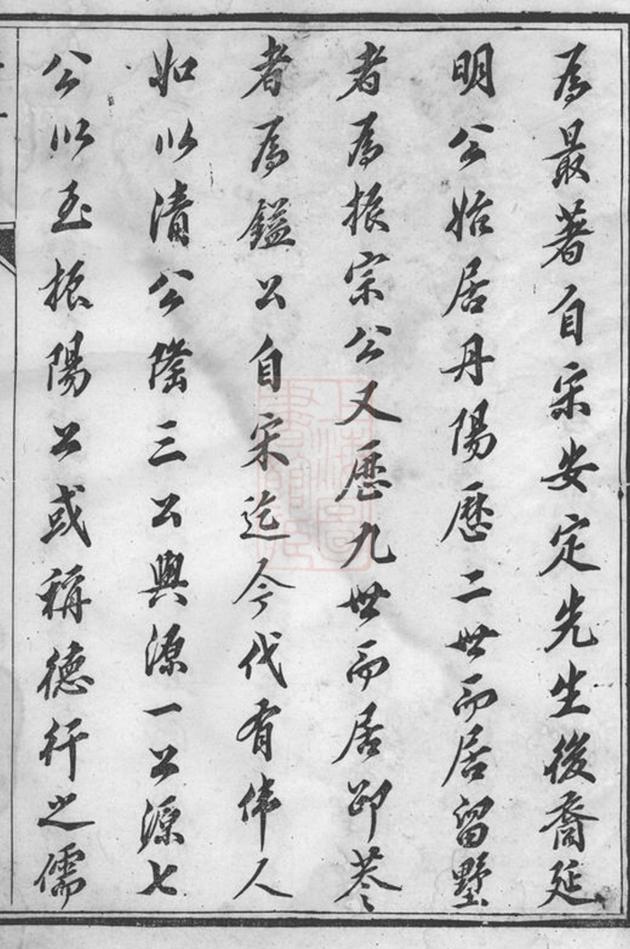 為最著自宋安定先生後裔延
明公始居丹陽歷二世而居留墅
者為振宗公又歷九世而居卭莶
者為鎰公自宋迄今代有偉人
如以清公隆三公與源一公源七
公以玉振陽公或稱德行之儒